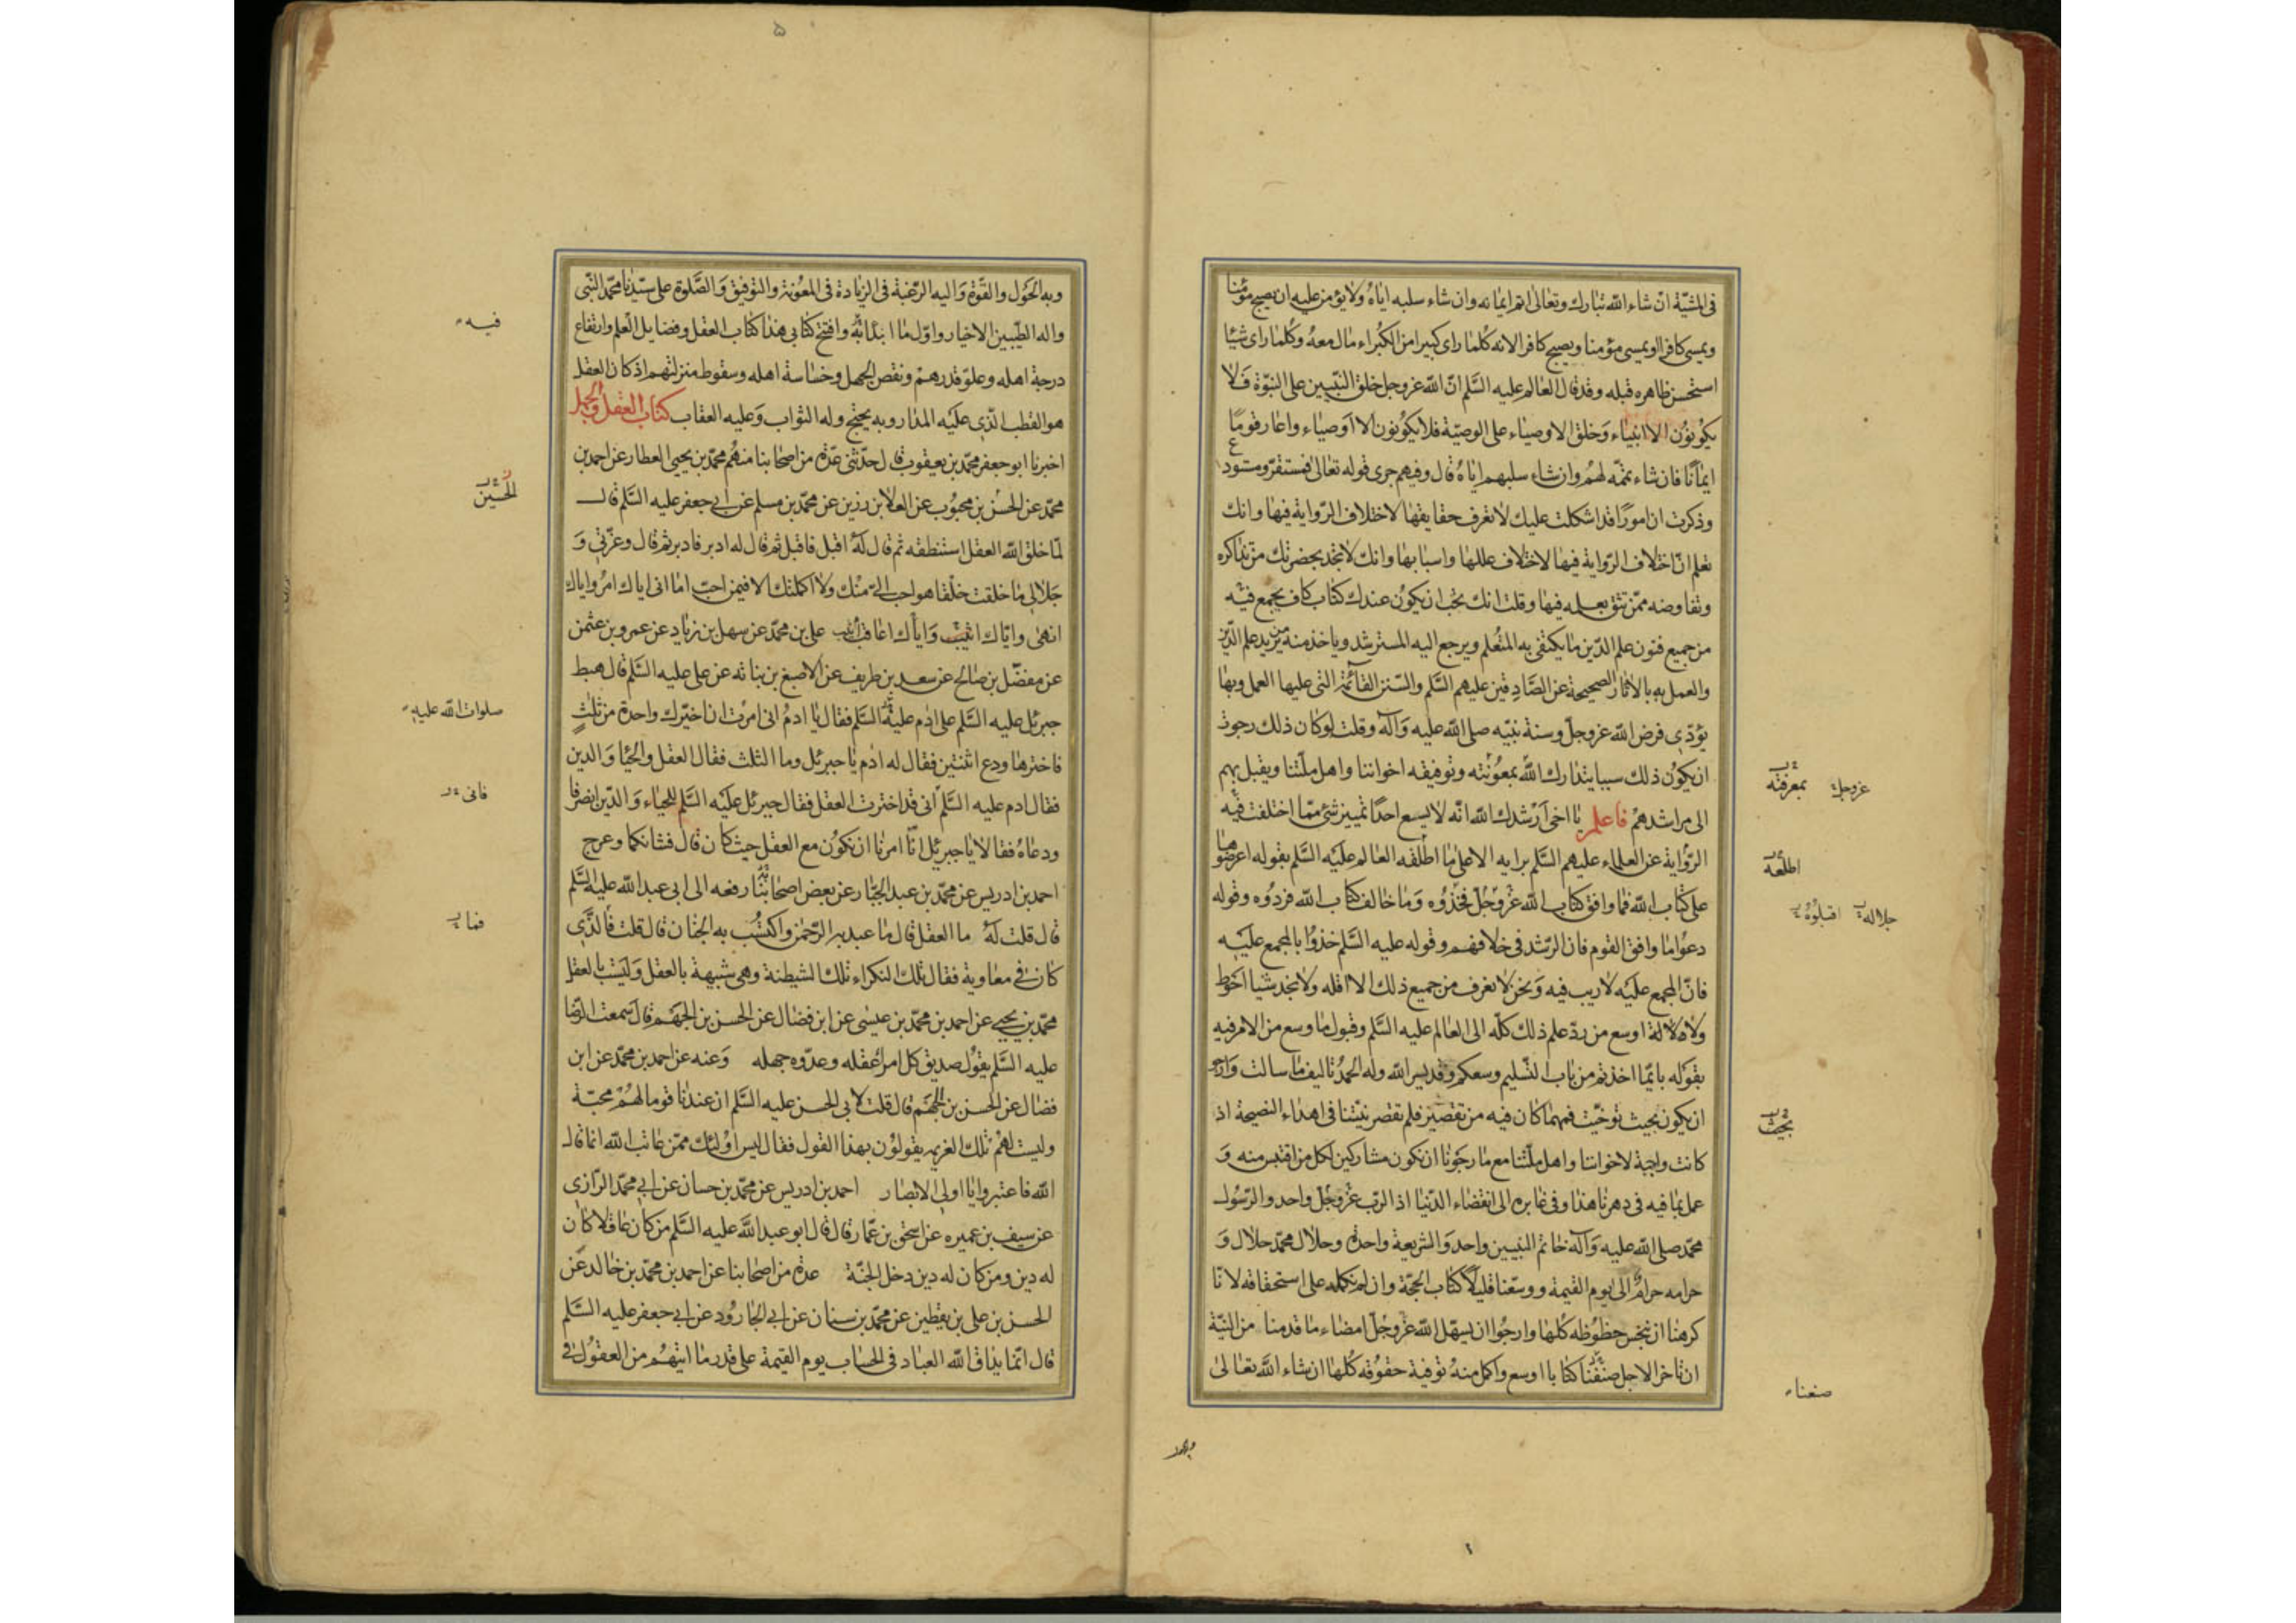 فى المشيّة ان شاء الله تبارك وتعالى اتم ايمانه وان شاء سلبه اياه ولا يؤمن عليه ان يصبح مؤمنا
ويمسى كافرا او يمسى مؤمنا ويصبح كافرا لانه كلما راى كبيرا من الكبراء مال معه وكلما راى شيئا
استحسن ظاهره قبله وقد قال العالم عليه السّلم انّ الله عز وجل خلق النبيين على النبوّة فلا
يكونون الا انبياء وخلق الاوصياء على الوصيّة فلا يكونون الا اوصياء واعار قوما
ايمانا فان شاء تمّمه لهم وان شاء سلبهم اياه قال وفيهم جرى قوله تعالى فمستقر ومستودع
وذكرت ان امورا قد اشكلت عليك لا تعرف حقايقها لاختلاف الرّواية فيها وانك
تعلم انّ اختلاف الرّواية فيها لاختلاف عللها واسبابها وانك لا تجد بحضرتك من تذاكره
وتفاوضه ممّن تثق بعلمه فيها وقلت انك تحب ان يكون عندك كتاب كاف يجمع فيه
من جميع فنون علم الدّين ما يكتفى به المتعلم ويرجع اليه المسترشد وياخذ منه من يريد علم الدّين
والعمل به بالاثار الصحيحة عن الصّادقين عليهم السّلم والسّنن القائمة التى عليها العمل وبها
يؤدّى فرض الله عز وجلّ وسنة نبيّه صلى الله عليه وآله وقلت لو كان ذلك رجوت
ان يكون ذلك سببا يتدارك الله بمعونته وتوفيقه اخواننا واهل ملّتنا ويقبل بهم
الى مراشدهم فاعلم يا اخى ارشدك الله انّه لا يسع احدا تمييز شئ ممّا اختلفت فيه
الرّواية عن العلماء عليهم السّلم برايه الا على ما اطلقه العالم عليه السّلم بقوله اعرضوها
على كتاب الله فما وافق كتاب الله عزّ وجلّ فخذوه وما خالف كتاب الله فردّوه وقوله
دعوا ما وافق القوم فان الرّشد فى خلافهم وقوله عليه السّلم خذوا بالمجمع عليه
فانّ المجمع عليه لا ريب فيه ونحن لا نعرف من جميع ذلك الا اقله ولا نجد شيا احوط
ولا اوسع من ردّ علم ذلك كلّه الى العالم عليه السّلم وقبول ما وسع من الامر فيه
بقوله بايّما اخذتم من باب التسليم وسعكم وقد يسر الله وله الحمد تاليف ما سالت وارجو
ان يكون بحيث توخيت فمهما كان فيه من تقصير فلم تقصر نيّتنا فى اهداء النصيحة اذ
كانت واجبة لاخواننا واهل ملّتنا مع ما رجونا ان نكون مشاركين لكل من اقتبس منه و
عمل بما فيه فى دهرنا هذا وفى غابره الى انقضاء الدّنيا اذ الرّب عزّ وجلّ واحد والرّسول
محمّد صلى الله عليه وآله خاتم النبيين واحد والشريعة واحدة وحلال محمّد حلال و
حرامه حرام الى يوم القيمة ووسّعنا قليلا كتاب الحجّة وان لم نكمله على استحقاقه لانا
كرهنا ان نبخس حظوظه كلها وارجوا ان يسهّل الله عزّ وجلّ امضاء ما قدمنا من النيّة
ان تاخر الاجل صنّفنا كتابا اوسع واكمل منه توفية حقوقه كلها ان شاء الله تعالى
عزوجل بمعرفته
اطلعه
جلاله اقبلوه
بحيث
صنعناء
۵
وبه الحول والقوّة واليه الرّغبة فى الزيادة فى المعونة والتوفيق والصّلوة على سيّدنا محمّد النّبى
واله الطّيبين الاخيار واوّل ما ابتدائه وافتتح كتابى هذا كتاب العقل وفضايل العلم وارتفاع
درجة اهله وعلوّ قدرهم ونقص الجهل وخساسة اهله وسقوط منزلتهم اذ كان العقل
هو القطب الّذى عليه المدار وبه يحتج وله الثواب وعليه العقاب كتاب العقل والجهل
اخبرنا ابو جعفر محمّد بن يعقوب قال حدّثنى عدّة من اصحابنا منهم محمّد بن يحيى العطار عن احمد بن
محمّد عن الحسن بن محبوب عن العلا بن رزين عن محمّد بن مسلم عن ابى جعفر عليه السّلم قال
لمّا خلق الله العقل استنطقه ثم قال له اقبل فاقبل ثم قال له ادبر فادبر ثم قال وعزّتى و
جلالى ما خلقت خلقا هو احب الىّ منك ولا اكملتك الا فيمن احبّ اما انى اياك امر واياك
انهى وايّاك اثيب واياك اعاقب على بن محمّد عن سهل بن زياد عن عمرو بن عثمن
عن مفضّل بن صالح عن سعد بن طريف عن الاصبغ بن نباته عن على عليه السّلم قال هبط
جبرئل عليه السّلم على ادم عليه السّلم فقال يا ادم انى امرت ان اخيّرك واحدة من ثلث
فاخترها ودع اثنتين فقال له ادم يا جبرئل وما الثلث فقال العقل والحيا والدين
فقال ادم عليه السّلم انى قد اخترت العقل فقال جبرئل عليه السّلم للحياء والدّين انصرفا
ودعاه فقالا يا جبرئل انّا امرنا ان نكون مع العقل حيث كان قال فشانكما وعرج
احمد بن ادريس عن محمّد بن عبد الجبّار عن بعض اصحابنا رفعه الى ابى عبد الله عليه السّلم
قال قلت له ما العقل قال ما عبد به الرّحمن واكتسب به الجنان قال قلت فالّذى
كان فى معاوية فقال تلك النكراء تلك الشيطنة وهى شبيهة بالعقل وليست بالعقل
محمّد بن يحيى عن احمد بن محمّد بن عيسى عن ابن فضال عن الحسن بن الجهم قال سمعت الرّضا
عليه السّلم يقول صديق كل امرء عقله وعدّوه جهله وعنه عن احمد بن محمّد عن ابن
فضال عن الحسن بن الجهم قال قلت لابى الحسن عليه السّلم ان عندنا قوما لهم محبّة
وليست لهم تلك العزيمه يقولون بهذا القول فقال ليس اولئك ممّن عاتب الله انما قال
الله فاعتبروا يا اولى الابصار احمد بن ادريس عن محمّد بن حسان عن ابى محمّد الرّازى
عن سيف بن عميره عن اسحق بن عمّار قال قال ابو عبد الله عليه السّلم من كان عاقلا كان
له دين ومن كان له دين دخل الجنّة عدة من اصحابنا عن احمد بن محمّد بن خالد عن
الحسن بن على بن يقطين عن محمّد بن سنان عن ابى الجارود عن ابى جعفر عليه السّلم
قال انّما يداق الله العباد فى الحساب يوم القيمة على قدر ما اتيهم من العقول فى
فيه
الحسين
صلوات الله عليه
فانى
فما